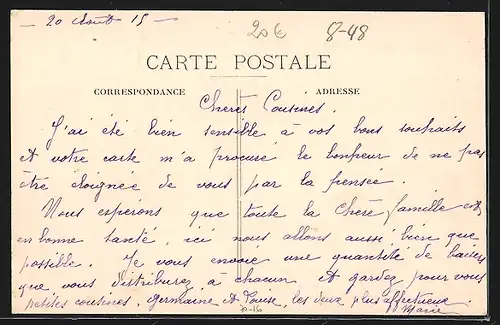 - 20 Aout 15 -
20€ 8-48
CARTE POSTALE
CORRESPONDANCE ADRESSE
Cheres Cousines.
J'ai été bien sensible à vos bons souhaits
et votre carte m'a procuré le bonheur de ne pas
être éloignée de vous par la pensée.
Nous esperons que toute la chère famille est
en bonne santé, ici nous allons aussi bien que
possible. Je vous envoie une quantite de baisers
que vous distriburez à chacun et gardez pour vous
petites cousines, Germaine et Louise, les deux plus affectueux.
Marie